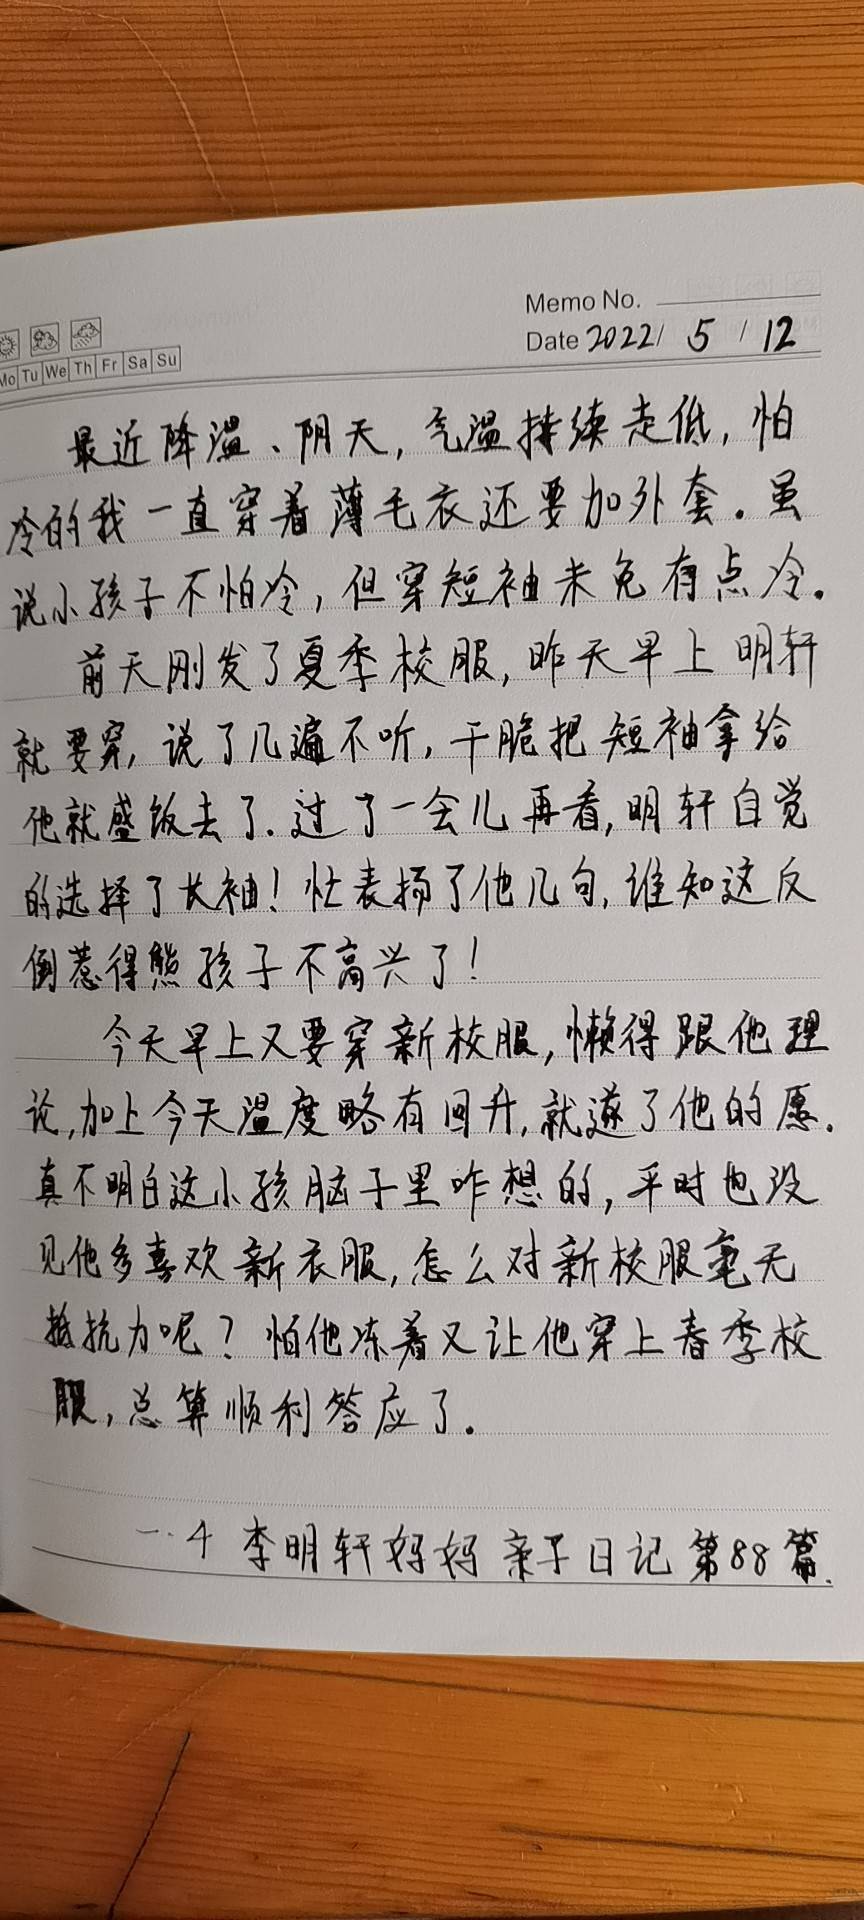 Memo No.
Date 2022/ 5 / 12
Mo Tu We Th Fr Sa Su
最近降温、阴天,气温持续走低,怕
冷的我一直穿着薄毛衣还要加外套。虽
说小孩子不怕冷,但穿短袖未免有点冷。
前天刚发了夏季校服,昨天早上明轩
就要穿,说了几遍不听,干脆把短袖拿给
他就盛饭去了.过了一会儿再看,明轩自觉
的选择了长袖!忙表扬了他几句,谁知这反
倒惹得熊孩子不高兴了!
今天早上又要穿新校服,懒得跟他理
论,加上今天温度略有回升,就遂了他的愿.
真不明白这小孩脑子里咋想的,平时也没
见他多喜欢新衣服,怎么对新校服毫无
抵抗力呢?怕他冻着又让他穿上春季校
服,总算顺利答应了.
一.4 李明轩妈妈亲子日记第88篇.